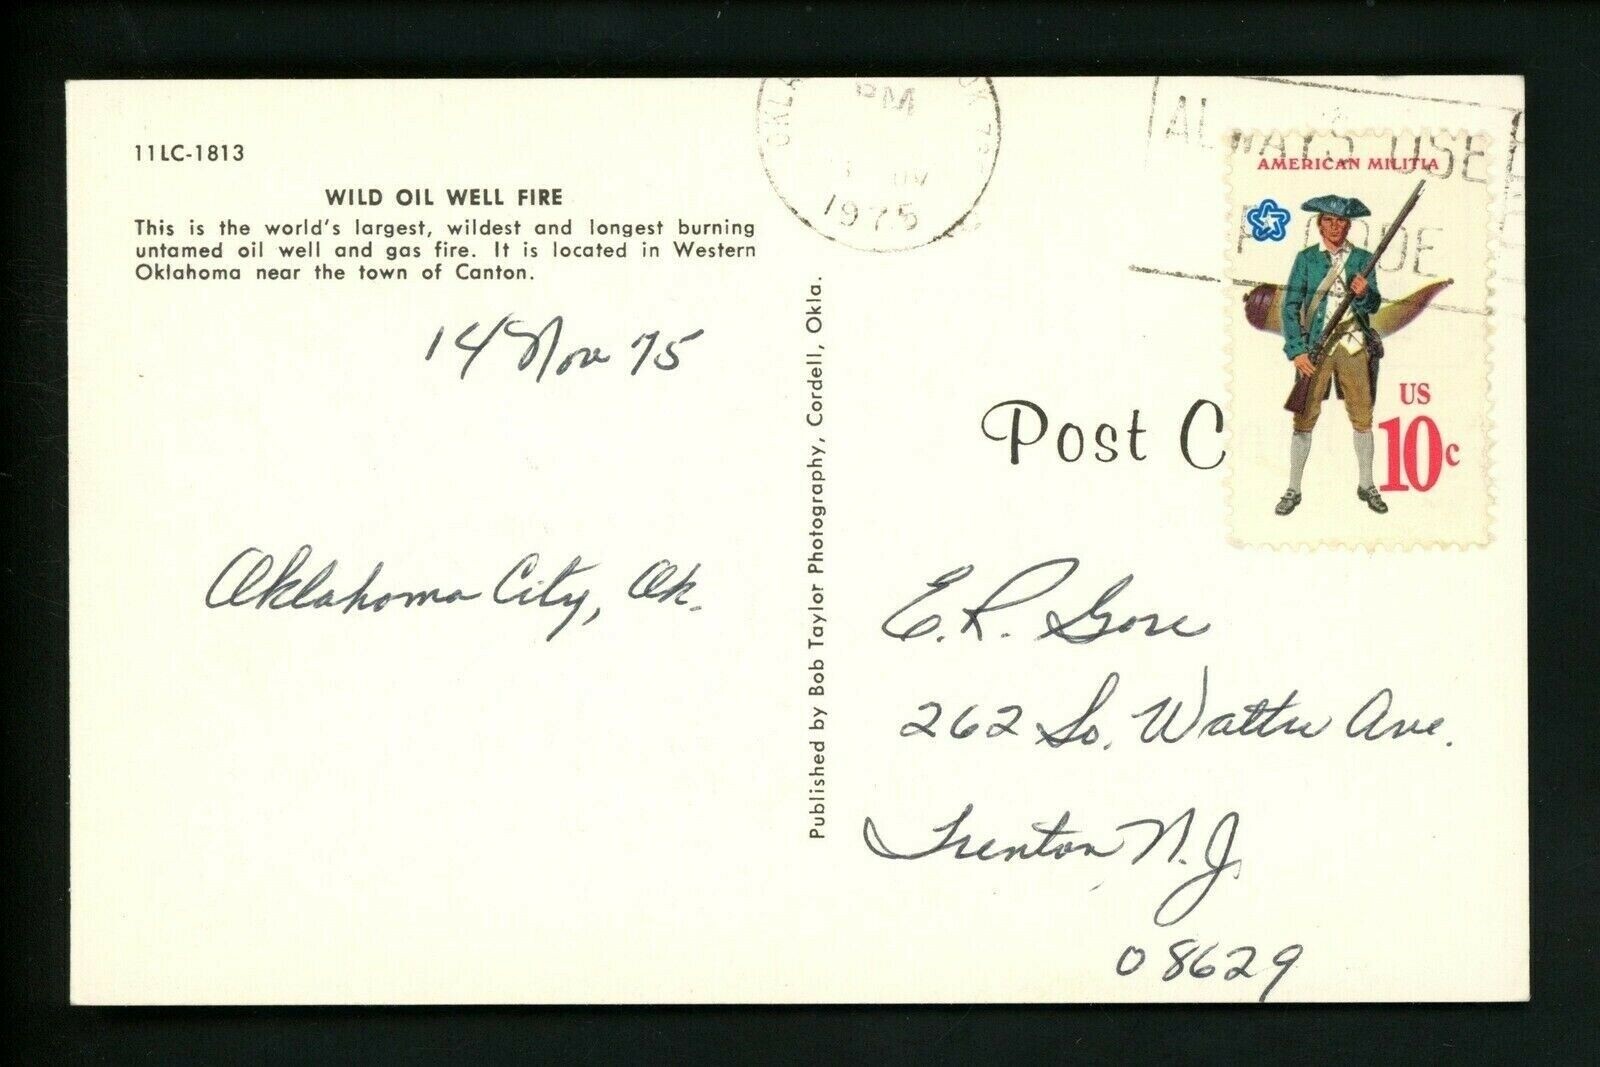 11LC-1813
WILD OIL WELL FIRE
This is the world's largest, wildest and longest burning
untamed oil well and gas fire. It is located in Western
Oklahoma near the town of Canton.
14 Nov 75
Oklahoma City, Ok.
Published by Bob Taylor Photography, Cordell, Okla.
PM
1975
ALWAYS USE
AMERICAN MILITIA
US
10c
Post C
E. R. Gore
262 So. Walter Ave.
Trenton N.J.
08629